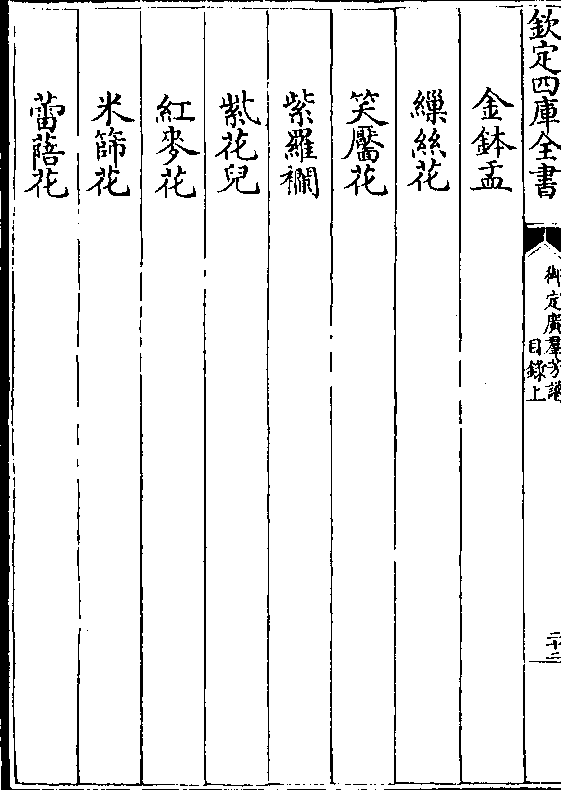 欽定四庫全書
御定廣羣芳譜
目錄上
二十二
金鉢盂
繅絲花
笑靨花
紫羅襴
紫花兒
紅麥花
米篩花
蕾蓓花